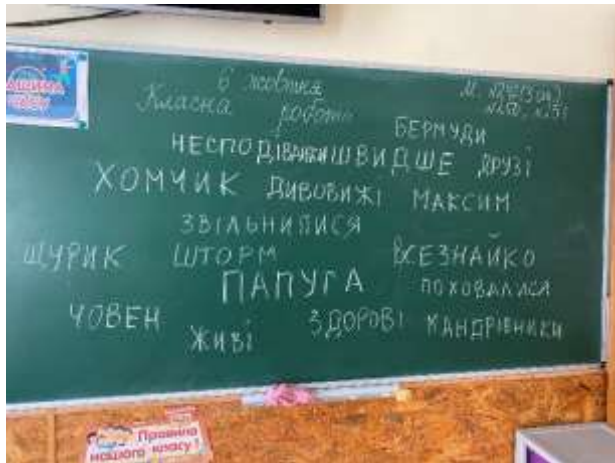 6 жовтня
Класна робота
БЕРМУДИ
НЕСПОДІВАНКИ ШВИДШЕ ДРУЗІ
ХОМЧИК ДИВОВИЖІ МАКСИМ
ЗВІЛЬНИЛИСЯ
ЩУРИК ШТОРМ ВСЕЗНАЙКО
ПАПУГА ПОХОВАЛИСЯ
ЧОВЕН ЖИВІ ЗДОРОВІ МАНДРІВНИКИ
Правила
нашого класу!